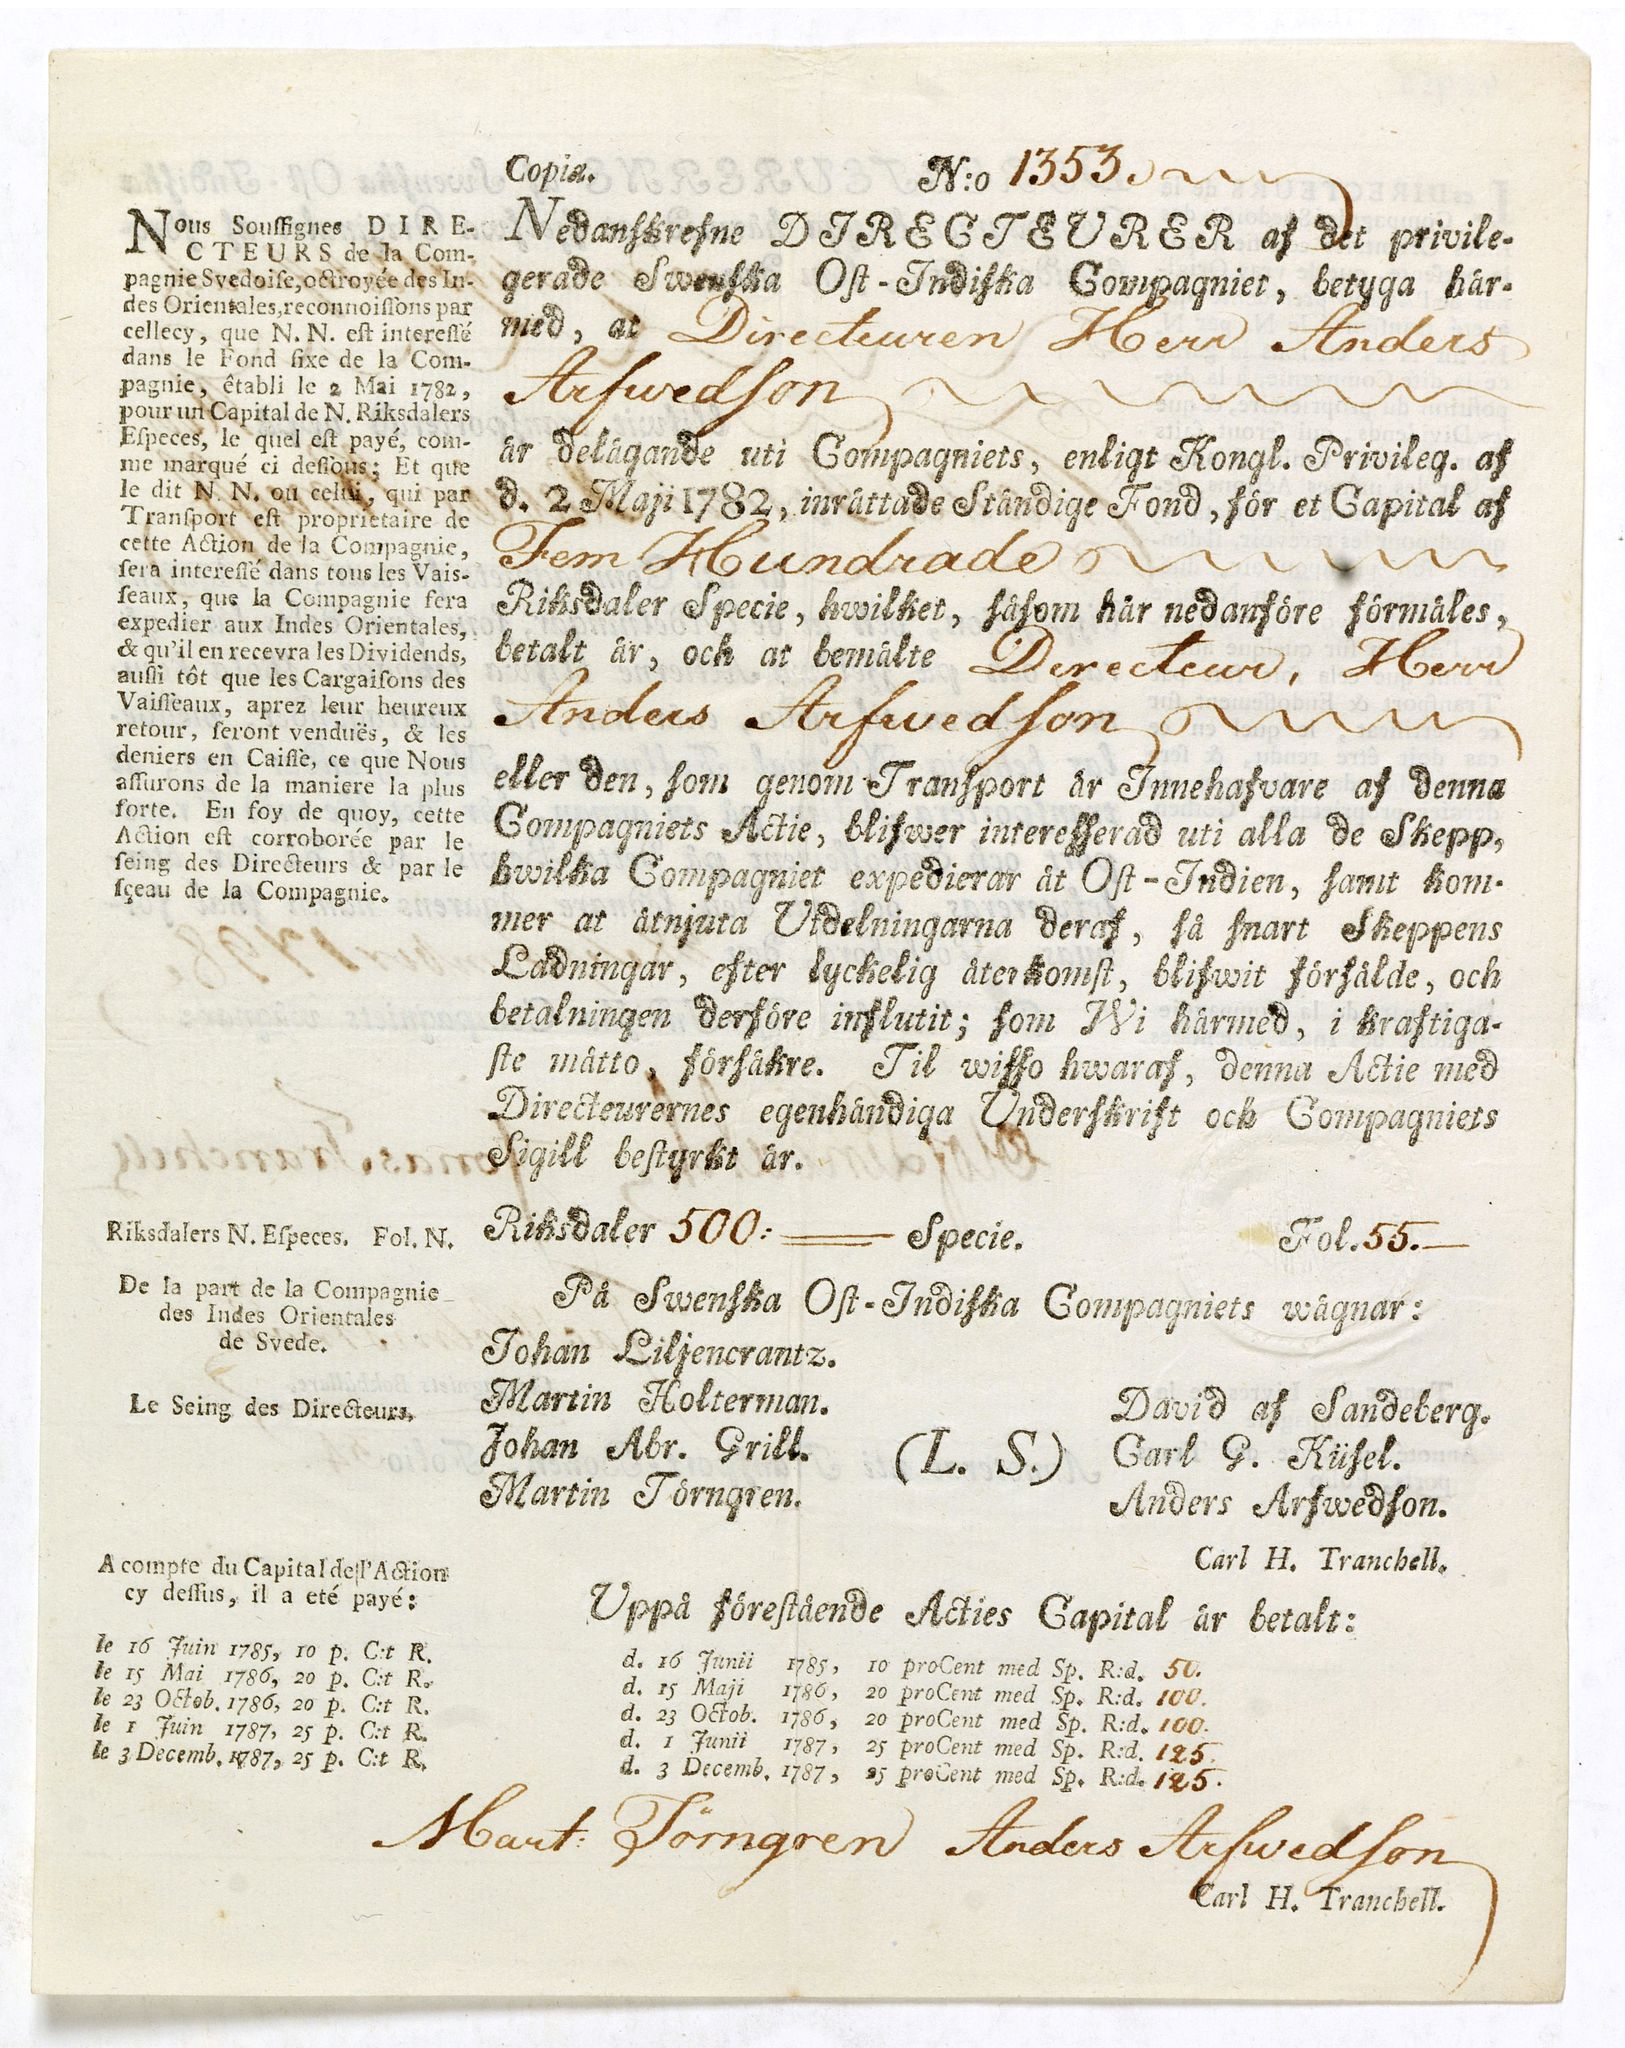 Copia.
N:o 1353.
Nous Souſſignes DIRE-
CTEURS de la Com-
pagnie Svedoiſe, octroyée des In-
des Orientales, reconnoiſſons par
cellecy, que N. N. eſt intereſſé
dans le Fond fixe de la Com-
pagnie, établi le 2 Mai 1782,
pour un Capital de N. Riksdalers
Eſpeces, le quel eſt payé, com-
me marqué ci deſſous; Et que
le dit N. N. ou celui, qui par
Tranſport eſt proprietaire de
cette Action de la Compagnie,
ſera intereſſé dans tous les Vaiſ-
ſeaux, que la Compagnie fera
expedier aux Indes Orientales,
& qu'il en recevra les Dividends,
auſſi tôt que les Cargaiſons des
Vaiſſeaux, aprez leur heureux
retour, ſeront venduës, & les
deniers en Caiſſe, ce que Nous
aſſurons de la maniere la plus
forte. En foy de quoy, cette
Action eſt corroborée par le
ſeing des Directeurs & par le
ſçeau de la Compagnie.
Nedanſkrefne DIRECTEURER af det privile-
gerade Swenſka Oſt-Indiſka Compagniet, betyga här-
med, at Directeuren Herr Anders
Arfwedſon
är delägande uti Compagniets, enligt Kongl. Privileg. af
d. 2 Maji 1782, inrättade Ständige Fond, för et Capital af
Fem Hundrade
Riksdaler Specie, hwilket, ſåſom här nedanföre förmäles,
betalt är, och at bemälte Directeur, Herr
Anders Arfwedſon
eller den, ſom genom Tranſport är Innehafvare af denna
Compagniets Actie, blifwer intereſſerad uti alla de Skepp,
hwilka Compagniet expedierar åt Oſt-Indien, ſamt kom-
mer at åtnjuta Utdelningarna deraf, ſå ſnart Skeppens
Ladningar, efter lyckelig återkomſt, blifwit förſålde, och
betalningen derföre influtit; ſom Wi härmed, i kraftiga-
ſte måtto, förſäkre. Til wiſſo hwaraf, denna Actie med
Directeurernes egenhändiga Underſkrift och Compagniets
Sigill beſtyrkt är.
Riksdalers N. Eſpeces. Fol. N.
Riksdaler 500: Specie. Fol. 55.
De la part de la Compagnie
des Indes Orientales
de Svede.
På Swenſka Oſt-Indiſka Compagniets wägnar:
Le Seing des Directeurs.
Johan Liljencrantz.
Martin Holterman.
Johan Abr. Grill.
Martin Törngren.
(L. S.)
David af Sandeberg.
Carl G. Küſel.
Anders Arfwedſon.
Carl H. Tranchell.
A compte du Capital de l'Action
cy deſſus, il a eté payé:
le 16 Juin 1785, 10 p. C:t R.
le 15 Mai 1786, 20 p. C:t R.
le 23 Octob. 1786, 20 p. C:t R.
le 1 Juin 1787, 25 p. C:t R.
le 3 Decemb. 1787, 25 p. C:t R.
Uppå föreſtående Acties Capital är betalt:
d. 16 Junii 1785, 10 proCent med Sp. R:d. 50.
d. 15 Maji 1786, 20 proCent med Sp. R:d. 100.
d. 23 Octob. 1786, 20 proCent med Sp. R:d. 100.
d. 1 Junii 1787, 25 proCent med Sp. R:d. 125.
d. 3 Decemb. 1787, 25 proCent med Sp. R:d. 125.
Mart: Törngren Anders Arfwedſon
Carl H. Tranchell.